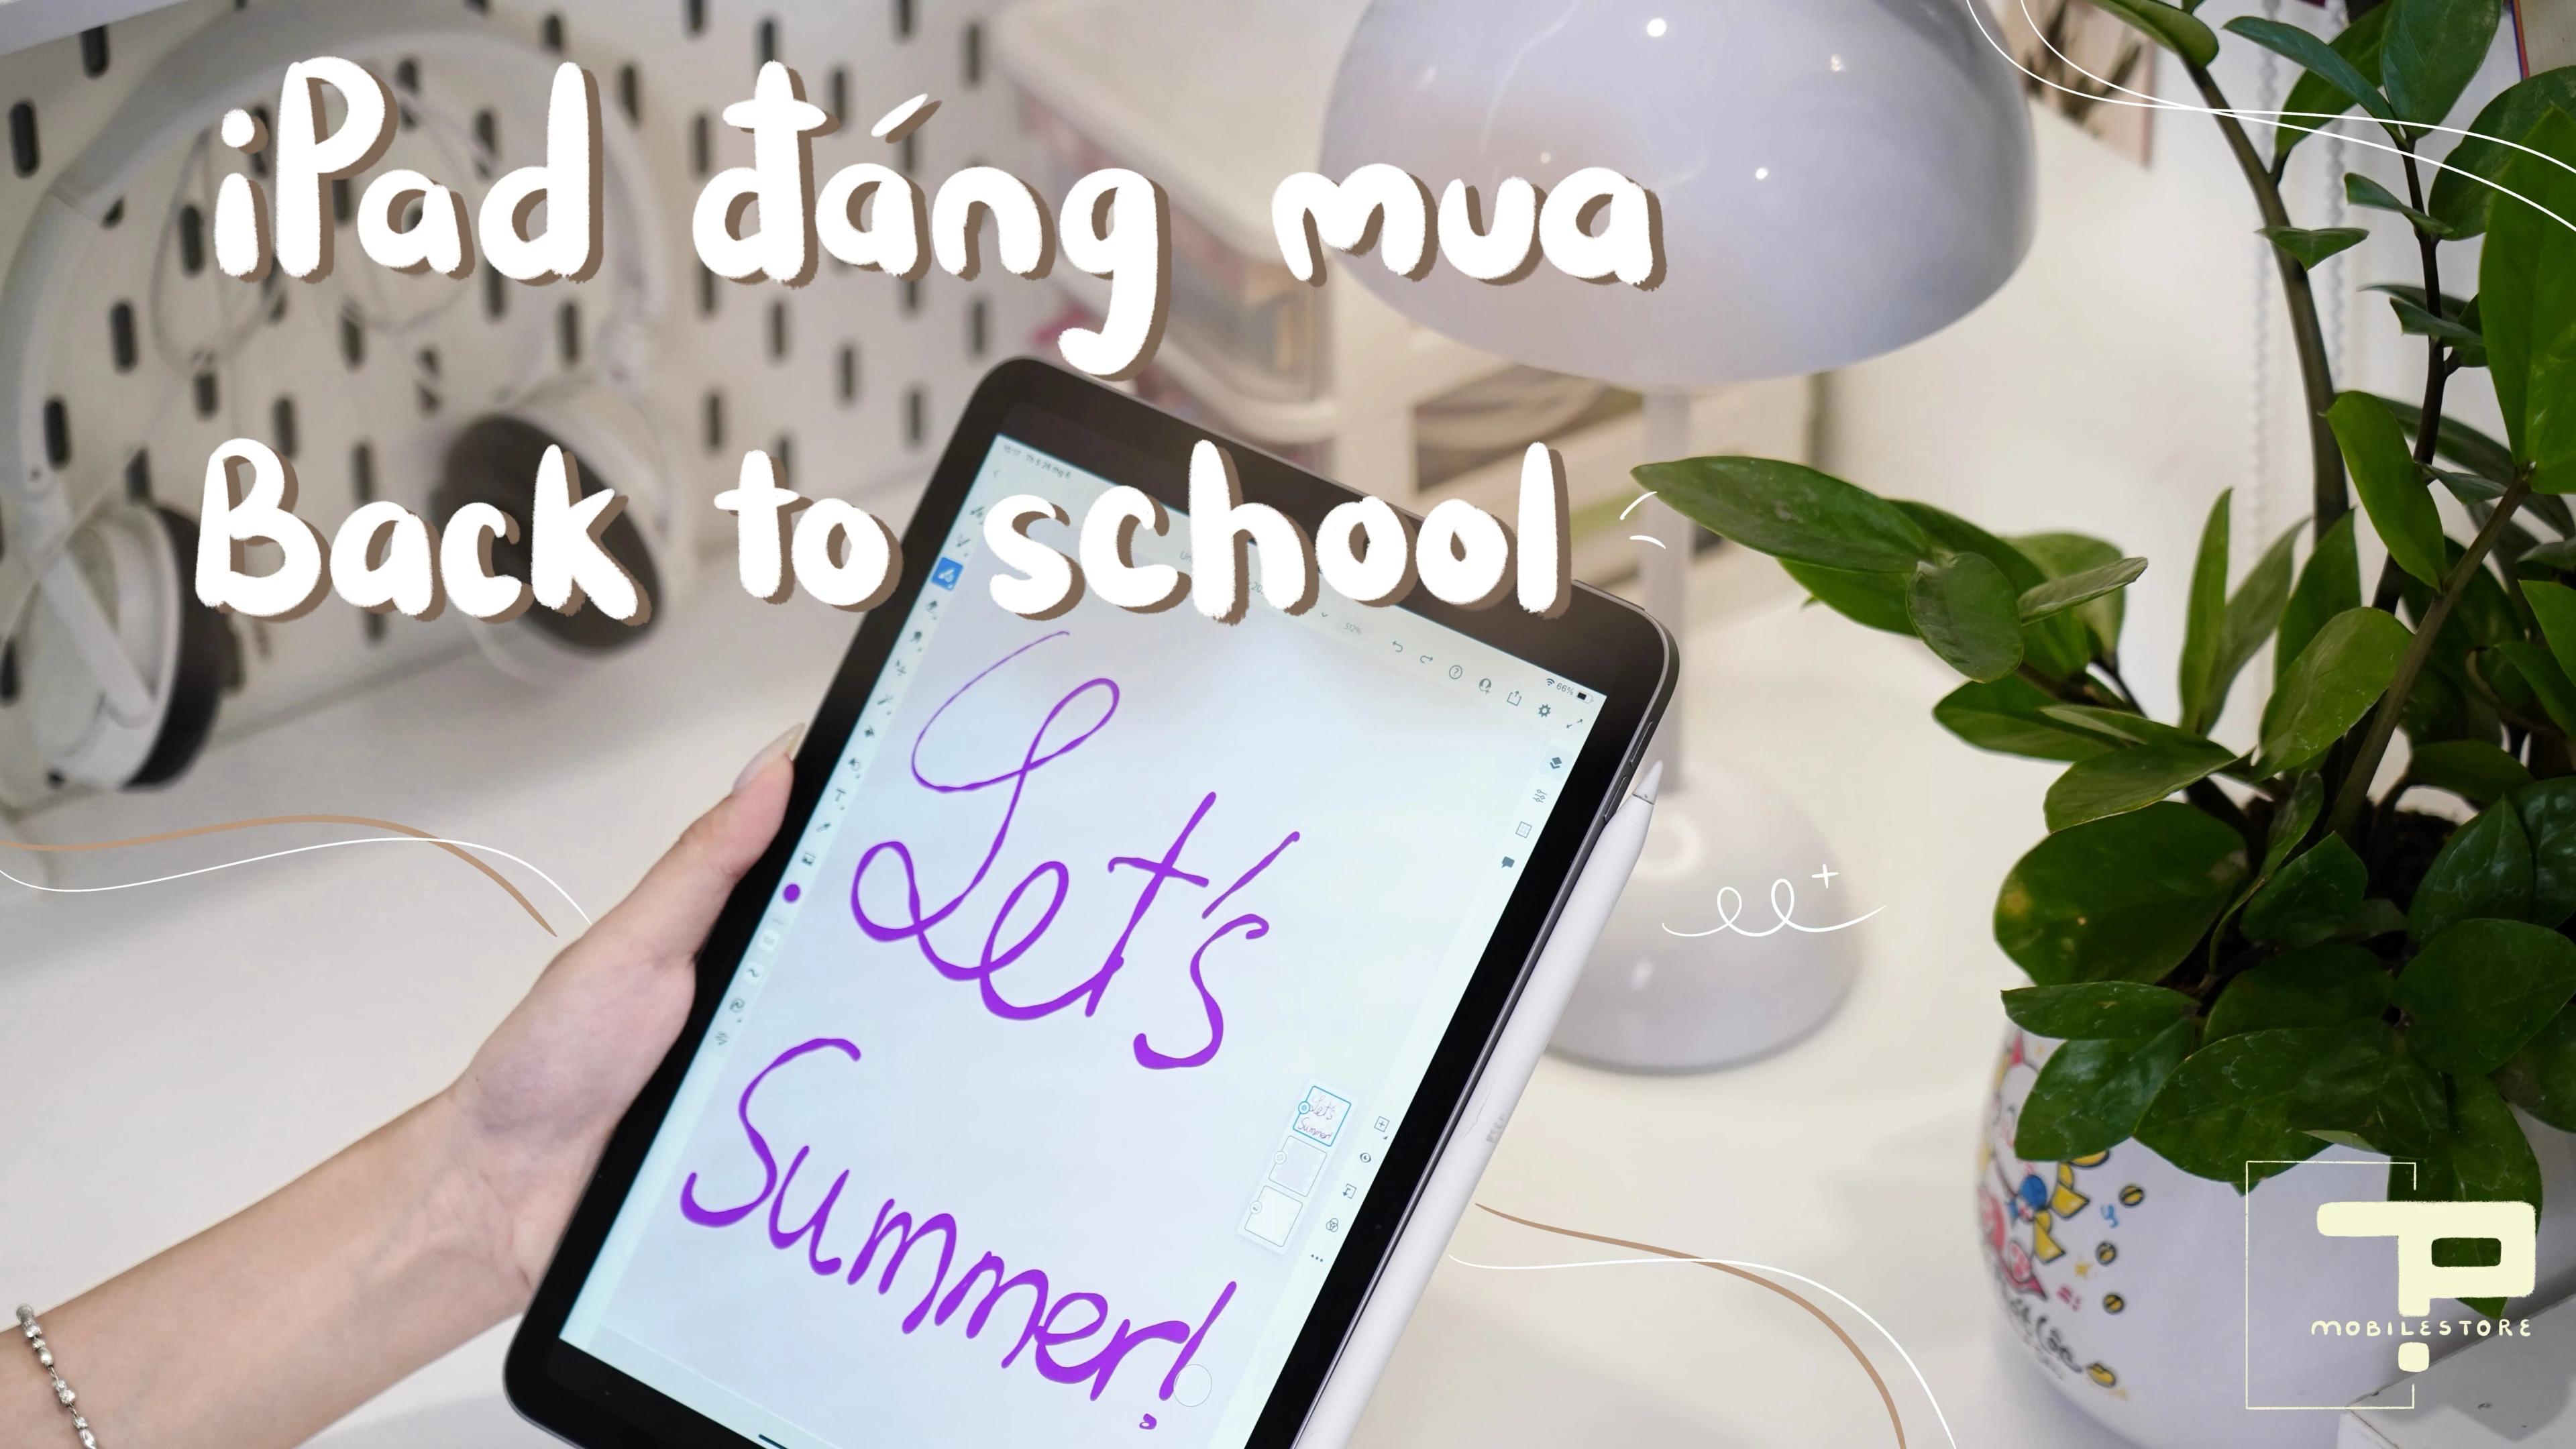 iPad đáng mua
Back to school
66%
Let's
Summer!
MOBILESTORE